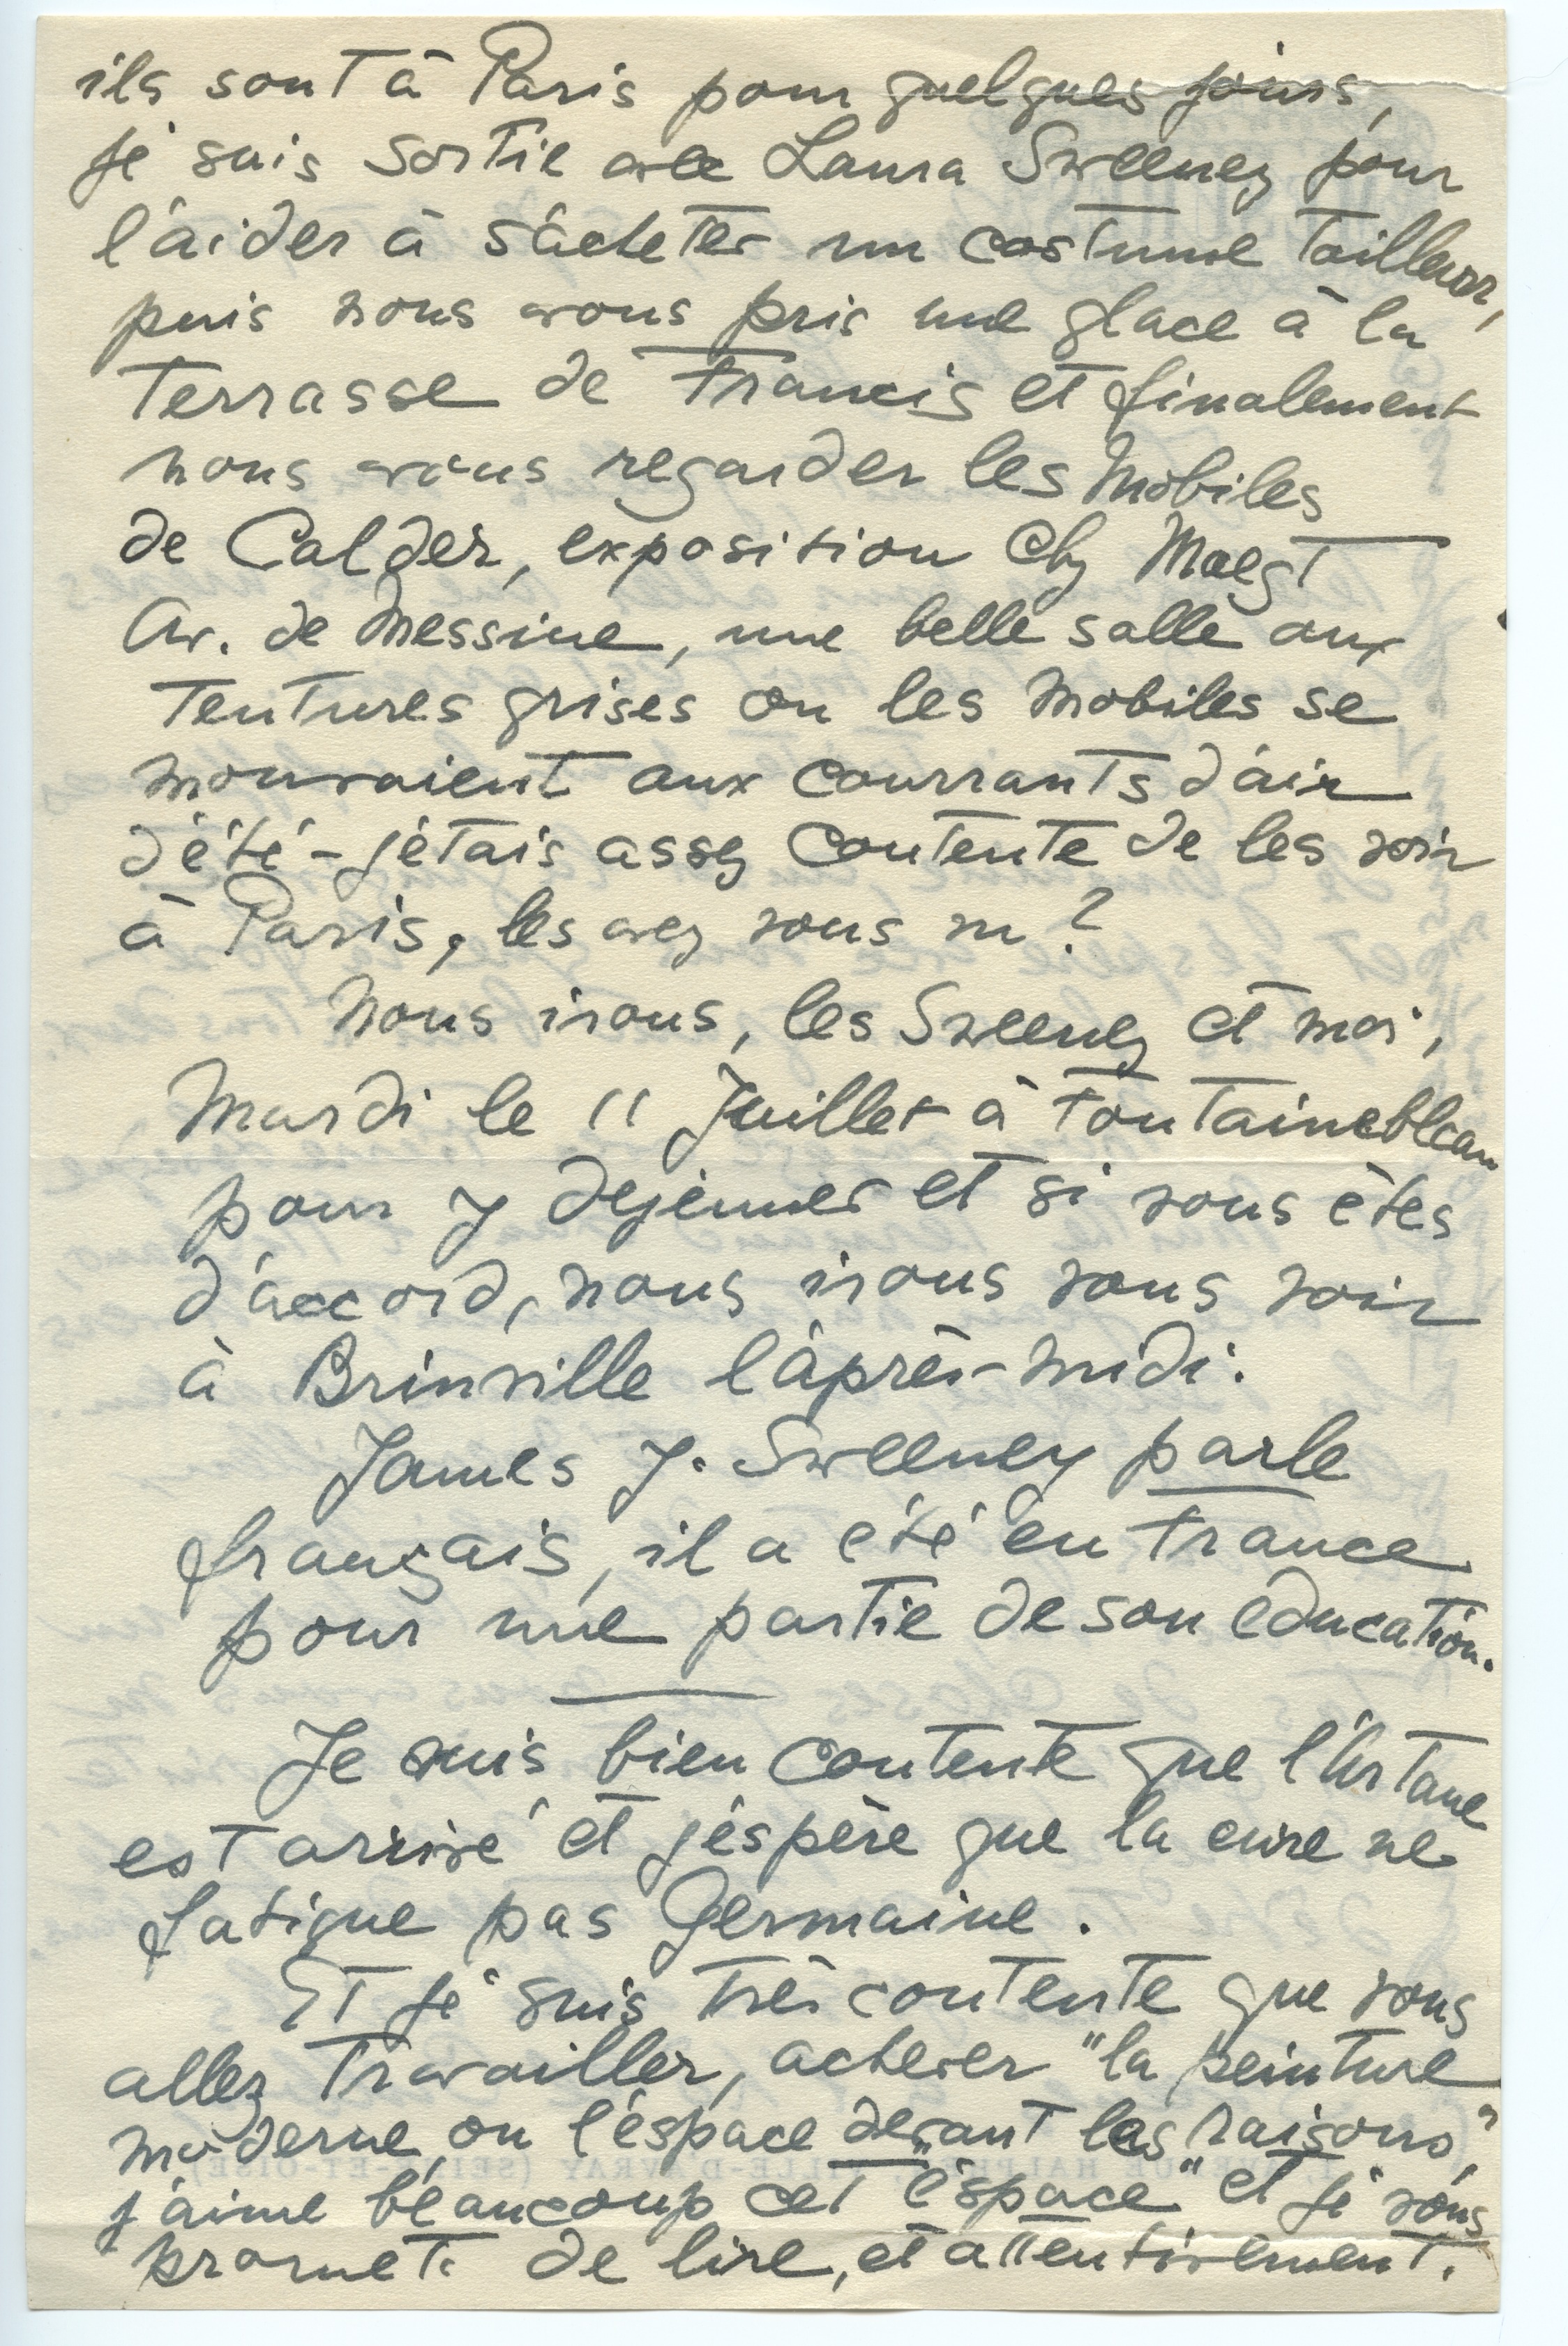 ils sont à Paris pour quelques jours,
je suis sortie avec Laura Sweeney pour
l'aider à s'acheter un costume tailleur,
puis nous avons pris une glace à la
terrasse de Francis et finalement
nous avons regarder les Mobiles
de Calder, exposition chez Maegt
Av. de Messine, une belle salle aux
tentures grises ou les Mobiles se
mouvaient aux courrants d'air
d'été – j'étais assez contente de les voir
à Paris, les avez vous vu ?
Nous irons, les Sweeney et moi,
Mardi le 11 Juillet à Fontainebleau
pour y dejeuner et si vous êtes
d'accord, nous irons vous voir
à Brinville l'après-midi.
James J. Sweeney parle
français, il a été en France
pour une partie de son éducation.
Je suis bien contente que
est arrivé et j'éspère que la cure ne
fatigue pas Germaine.
Et je suis très contente que vous
allez travailler, achever "la peinture
moderne, ou l'éspace devant les raisons",
j'aime beaucoup cet "éspace" et je vous
promets de lire, et attentivement.